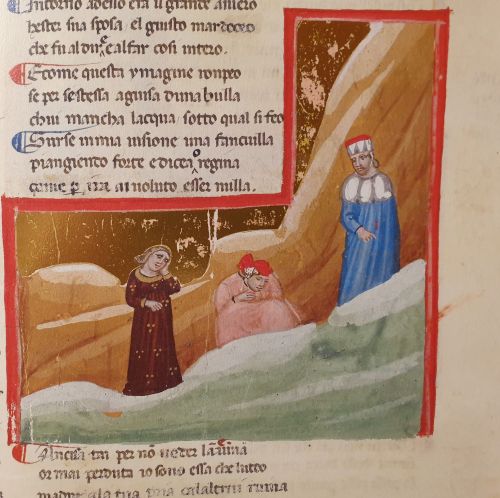 Intorno adesso era il grande asuero
hester sua sposa el giusto mardoceo
che fu al dir e al far cosi intero.
E come questa ymagine rompeo
se per se stessa aguisa duna bulla
chui mancha lacqua sotto qual si feo
Surse in mia uisione una fanciulla
piangiento forte e dicea o regina
come p ira ai uoluto esser nulla.
Ancisa tai per nō
or mai perduta io sono essa che luteo
madre ala tua pria ruina